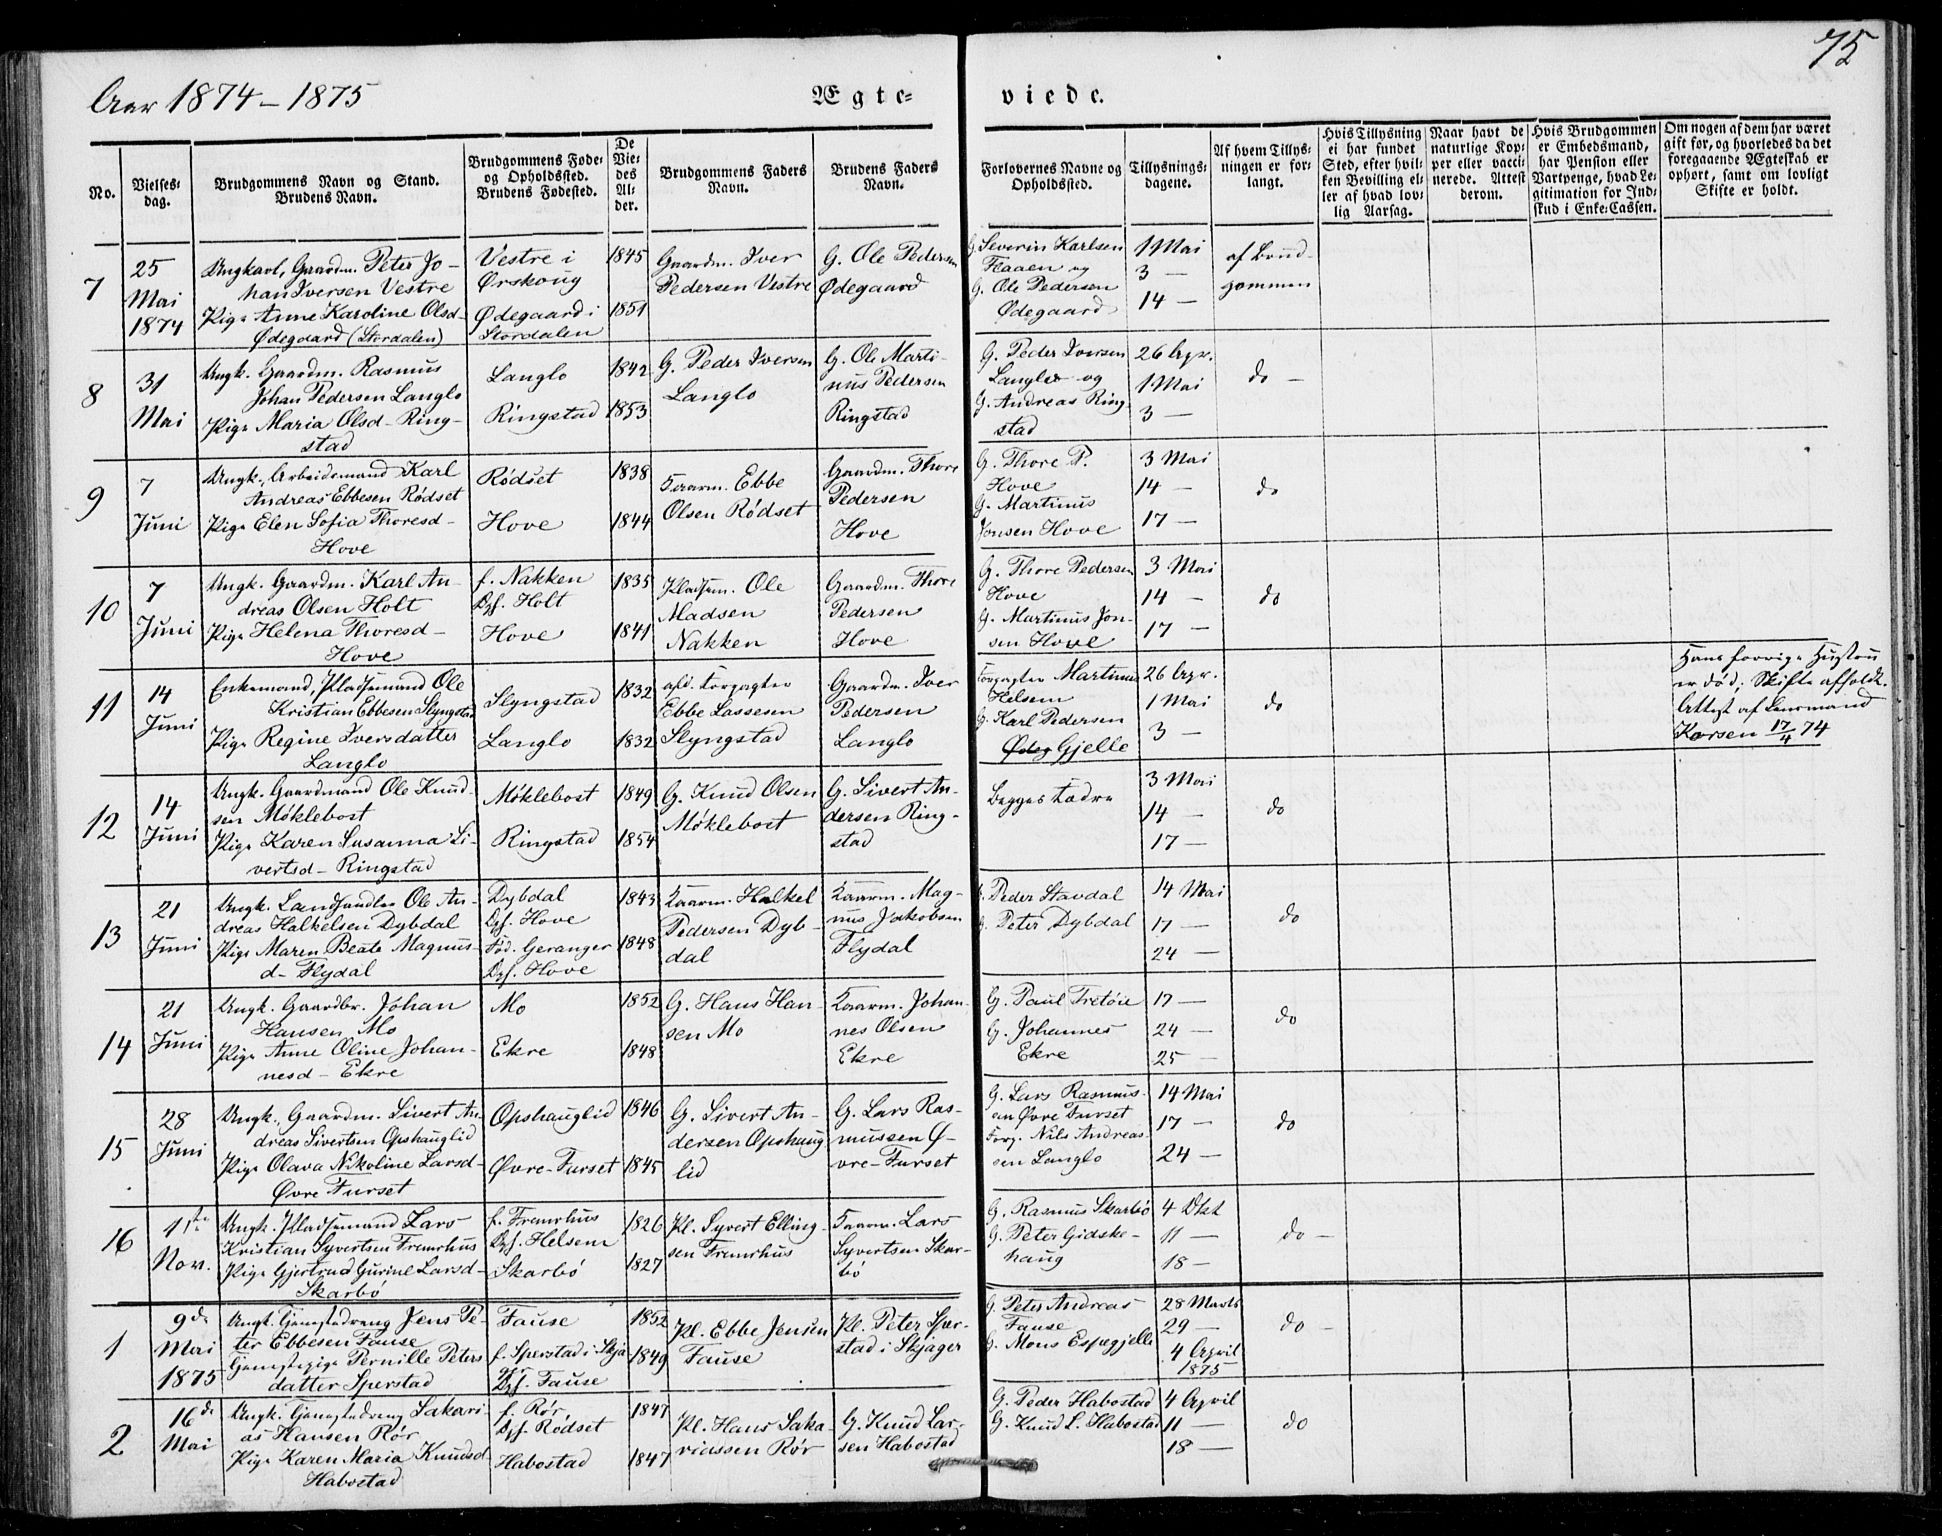 75
Aar 1874-1875
Ægte-
viede.
No.
Vielses-
dag.
Brudgommens Navn og Stand.
Brudens Navn.
Brudgommens Føde-
og Opholdssted.
Brudens Fødested.
De
Vie-
des
Al-
der.
Brudgommens Faders
Navn.
Brudens Faders
Navn.
Forlovernes Navne og
Opholdssted.
Tillysnings-
dagene.
Af hvem Tillys-
ningen er for-
langt.
Hvis Tillysning
ei har fundet
Sted, efter hvil-
ken Bevilling el-
ler af hvad lov-
lig Aarsag.
Naar havt de
naturlige Kop-
per eller vacci-
nerede. Attest
derom.
Hvis Brudgommen
er Embedsmand,
har Pension eller
Vartpenge, hvad Le-
gitimation for Ind-
skud i Enke-Cassen.
Om nogen af dem har været
gift før, og hvorledes da det
foregaaende Ægteskab er
ophørt, samt om lovligt
Skifte er holdt.
7
25
Mai
1874
Ungkarl, Gaardm. Peter Jo-
han Iversen Vestre
Pige Anne Karoline Olsd-
Ødegaard (Stordalen)
Vestre i
Ørskoug
Ødegaard i
Stordalen
1845
1851
Gaardm. Iver
Pedersen Vestre
G. Ole Pedersen
Ødegaard
G. Severin Karlsen
Flaaen og
G. Ole Pedersen
Ødegaard
1 Mai
3 —
14 —
af Brud-
gommen
8
31
Mai
Ungk. Gaardm. Rasmus
Johan Pedersen Langlo
Pige Maria Olsd- Ring-
stad
Langlo
Ringstad
1842
1853
G. Peder Iversen
Langlo
G. Ole Marti-
nus Pedersen
Ringstad
G. Peder Iversen
Langlo og
G. Andreas Ring-
stad
26 Apr.
1 Mai
3 —
do —
9
7
Juni
Ungk. Arbeidsmand Karl
Andreas Ebbesen Rødset
Pige Elen Sofia Thoresd-
Hove
Rødset
Hove
1838
1844
Kaarm. Ebbe
Olsen Rødset
Gaardm. Thore
Pedersen
Hove
G. Thore P.
Hove
G. Martinus
Jonsen Hove
3 Mai
14 —
17 —
do
10
7
Juni
Ungk. Gaardm. Karl An-
dreas Olsen Holt
Pige Helena Thoresd-
Hove
f. Nakken
Opf. Holt
Hove
1835
1841
Pladsm. Ole
Madsen
Nakken
Gaardm. Thore
Pedersen
Hove
G. Thore Pedersen
Hove
G. Martinus Jon-
sen Hove
3 Mai
14 —
17 —
do
11
14
Juni
Enkemand, Pladsemand Ole
Kristian Ebbesen Slyngstad
Pige Regine Iversdatter
Langlo
Slyngstad
Langlo
1832
1832
afd. Forpagter
Ebbe Lassesen
Slyngstad
Gaardm. Iver
Pedersen
Langlo
Forpagter Martinus
Helsem
G. Karl Pedersen
Gjelle
26 Apr.
1 Mai
3 —
do
Hans forrige Hustru
er død; Skifte afholdt.
Attest af Lensmand
Korsen 17/4 74
12
14
Juni
Ungk. Gaardmand Ole Knud-
sen Møklebost
Pige Karen Susanna Si-
vertsd- Ringstad
Møklebost
Ringstad
1849
1854
G. Knud Olsen
Møklebost
G. Sivert An-
dersen Ring-
stad
Begges Fædre
3 Mai
14 —
17 —
do
13
21
Juni
Ungk. Landhandler Ole An-
dreas Halkelsen Dybdal
Pige Maren Beate Magnus-
d- Flydal
Dybdal
Opf. Hove
Fød. Geranger
Opf. Hove
1843
1848
Kaarm. Halkel
Pedersen Dyb-
dal
Kaarm. Mag-
nus Jakobsen
Flydal
G. Peder Stavdal
G. Peter Dybdal
14 Mai
17 —
24 —
do
14
21
Juni
Ungk. Gaardbr. Johan
Hansen Mo
Pige Anne Oline Johan-
nesd- Ekre
Mo
Ekre
1852
1848
G. Hans Han-
sen Mo
Kaarm. Johan-
nes Olsen
Ekre
G. Paul Tretøie
G. Johannes
Ekre
17 —
24 —
25 —
do
15
28
Juni
Ungk. Gaardm. Sivert An-
dreas Sivertsen Opshauglid
Pige Olava Nikoline Larsd-
Øvre Furset
Opshauglid
Øvre-Furset
1846
1845
G. Sivert An-
dersen Opshaug
lid
G. Lars Ras-
mussen Ø-
vre-Furset
G. Lars Rasmus-
en Øvre Furset
Forp. Nils Andreas-
sen Langlo
14 Mai
17 —
24 —
do
16
1ste
Nov.
Ungk. Pladsemand Lars
Kristian Syvertsen Fremrhus
Pige Gjertrud Gurine Larsd-
Skarbø
f. Fremrhus
Opf. Helsem
Skarbø
1826
1827
Pl. Syvert Elling-
sen Fremrhus
Kaarm. Lars
Syvertsen Skar-
bø
G. Rasmus Skarbø
G. Peter Gidske-
haug
4 Okt
11 —
18 —
do —
1
9de
Mai
1875
Ungk. Tjenestedreng Jens Pe-
ter Ebbesen Fause
Tjenestepige Pernille Peters
datter Sperstad
Fause
f. Sperstad i Skja
ger
Opf. Fause
1852
1849
Pl. Ebbe Jensen
Fause
Pl. Peter Sper-
stad i Skjager
G. Peter Andreas
Fause
G. Mons Espegjelle
28 Marts
29 —
4 April
1875
do —
2
16de
Mai
Ungk. Tjenestedreng Sakari-
as Hansen Rør
Pige Karen Maria Knudsd
Habostad
f. Rør
Opf. Rødset
Habostad
1847
1847
Pl. Hans Saka-
riassen Rør
G. Knud Lar-
sen Habostad
G. Peder Habostad
G. Knud L. Habostad
4 April
11 —
18 —
do